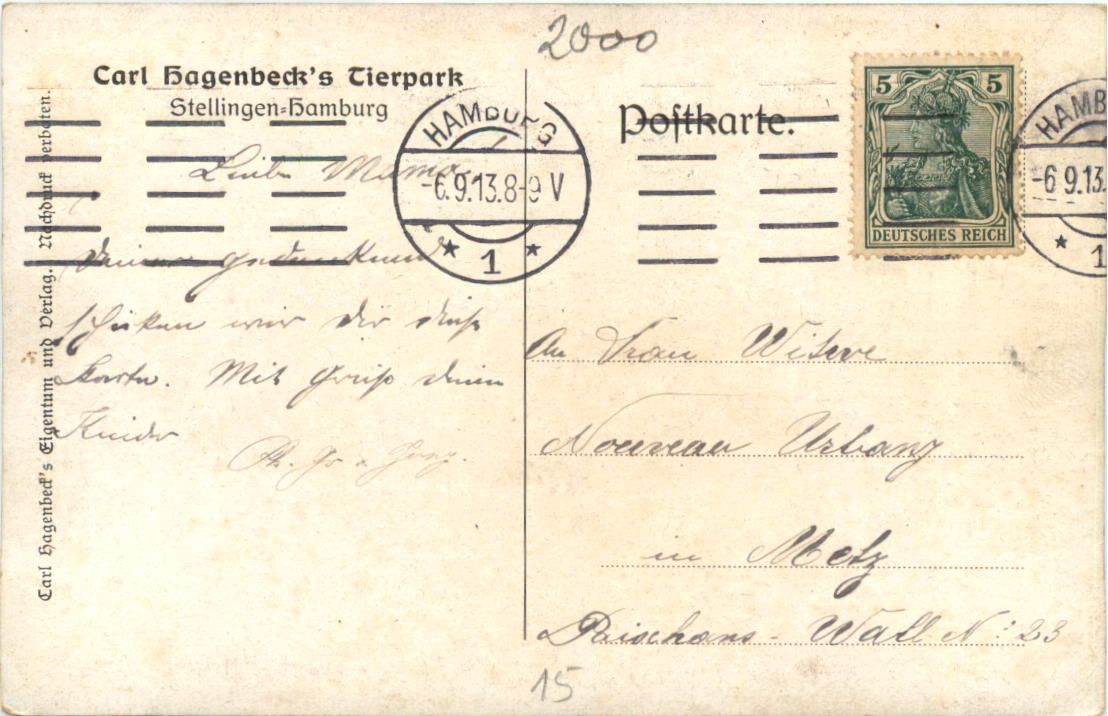 2000
Carl Hagenbeck's Tierpark
Stellingen-Hamburg
Postkarte.
5 5
DEUTSCHES REICH
HAMBURG
-6.9.13.8-9 V
* 1 *
HAMB
-6 9.13.
* 1
Carl Hagenbeck's Eigentum und Verlag. Nachdruck verboten.
Liebe Mama
Deiner gedenkend
schicken wir dir diese
Karte. Mit Gruß deine
Kinder
An Frau Witwe
Nouveau Urbany
in Metz
Wall N: 23
15